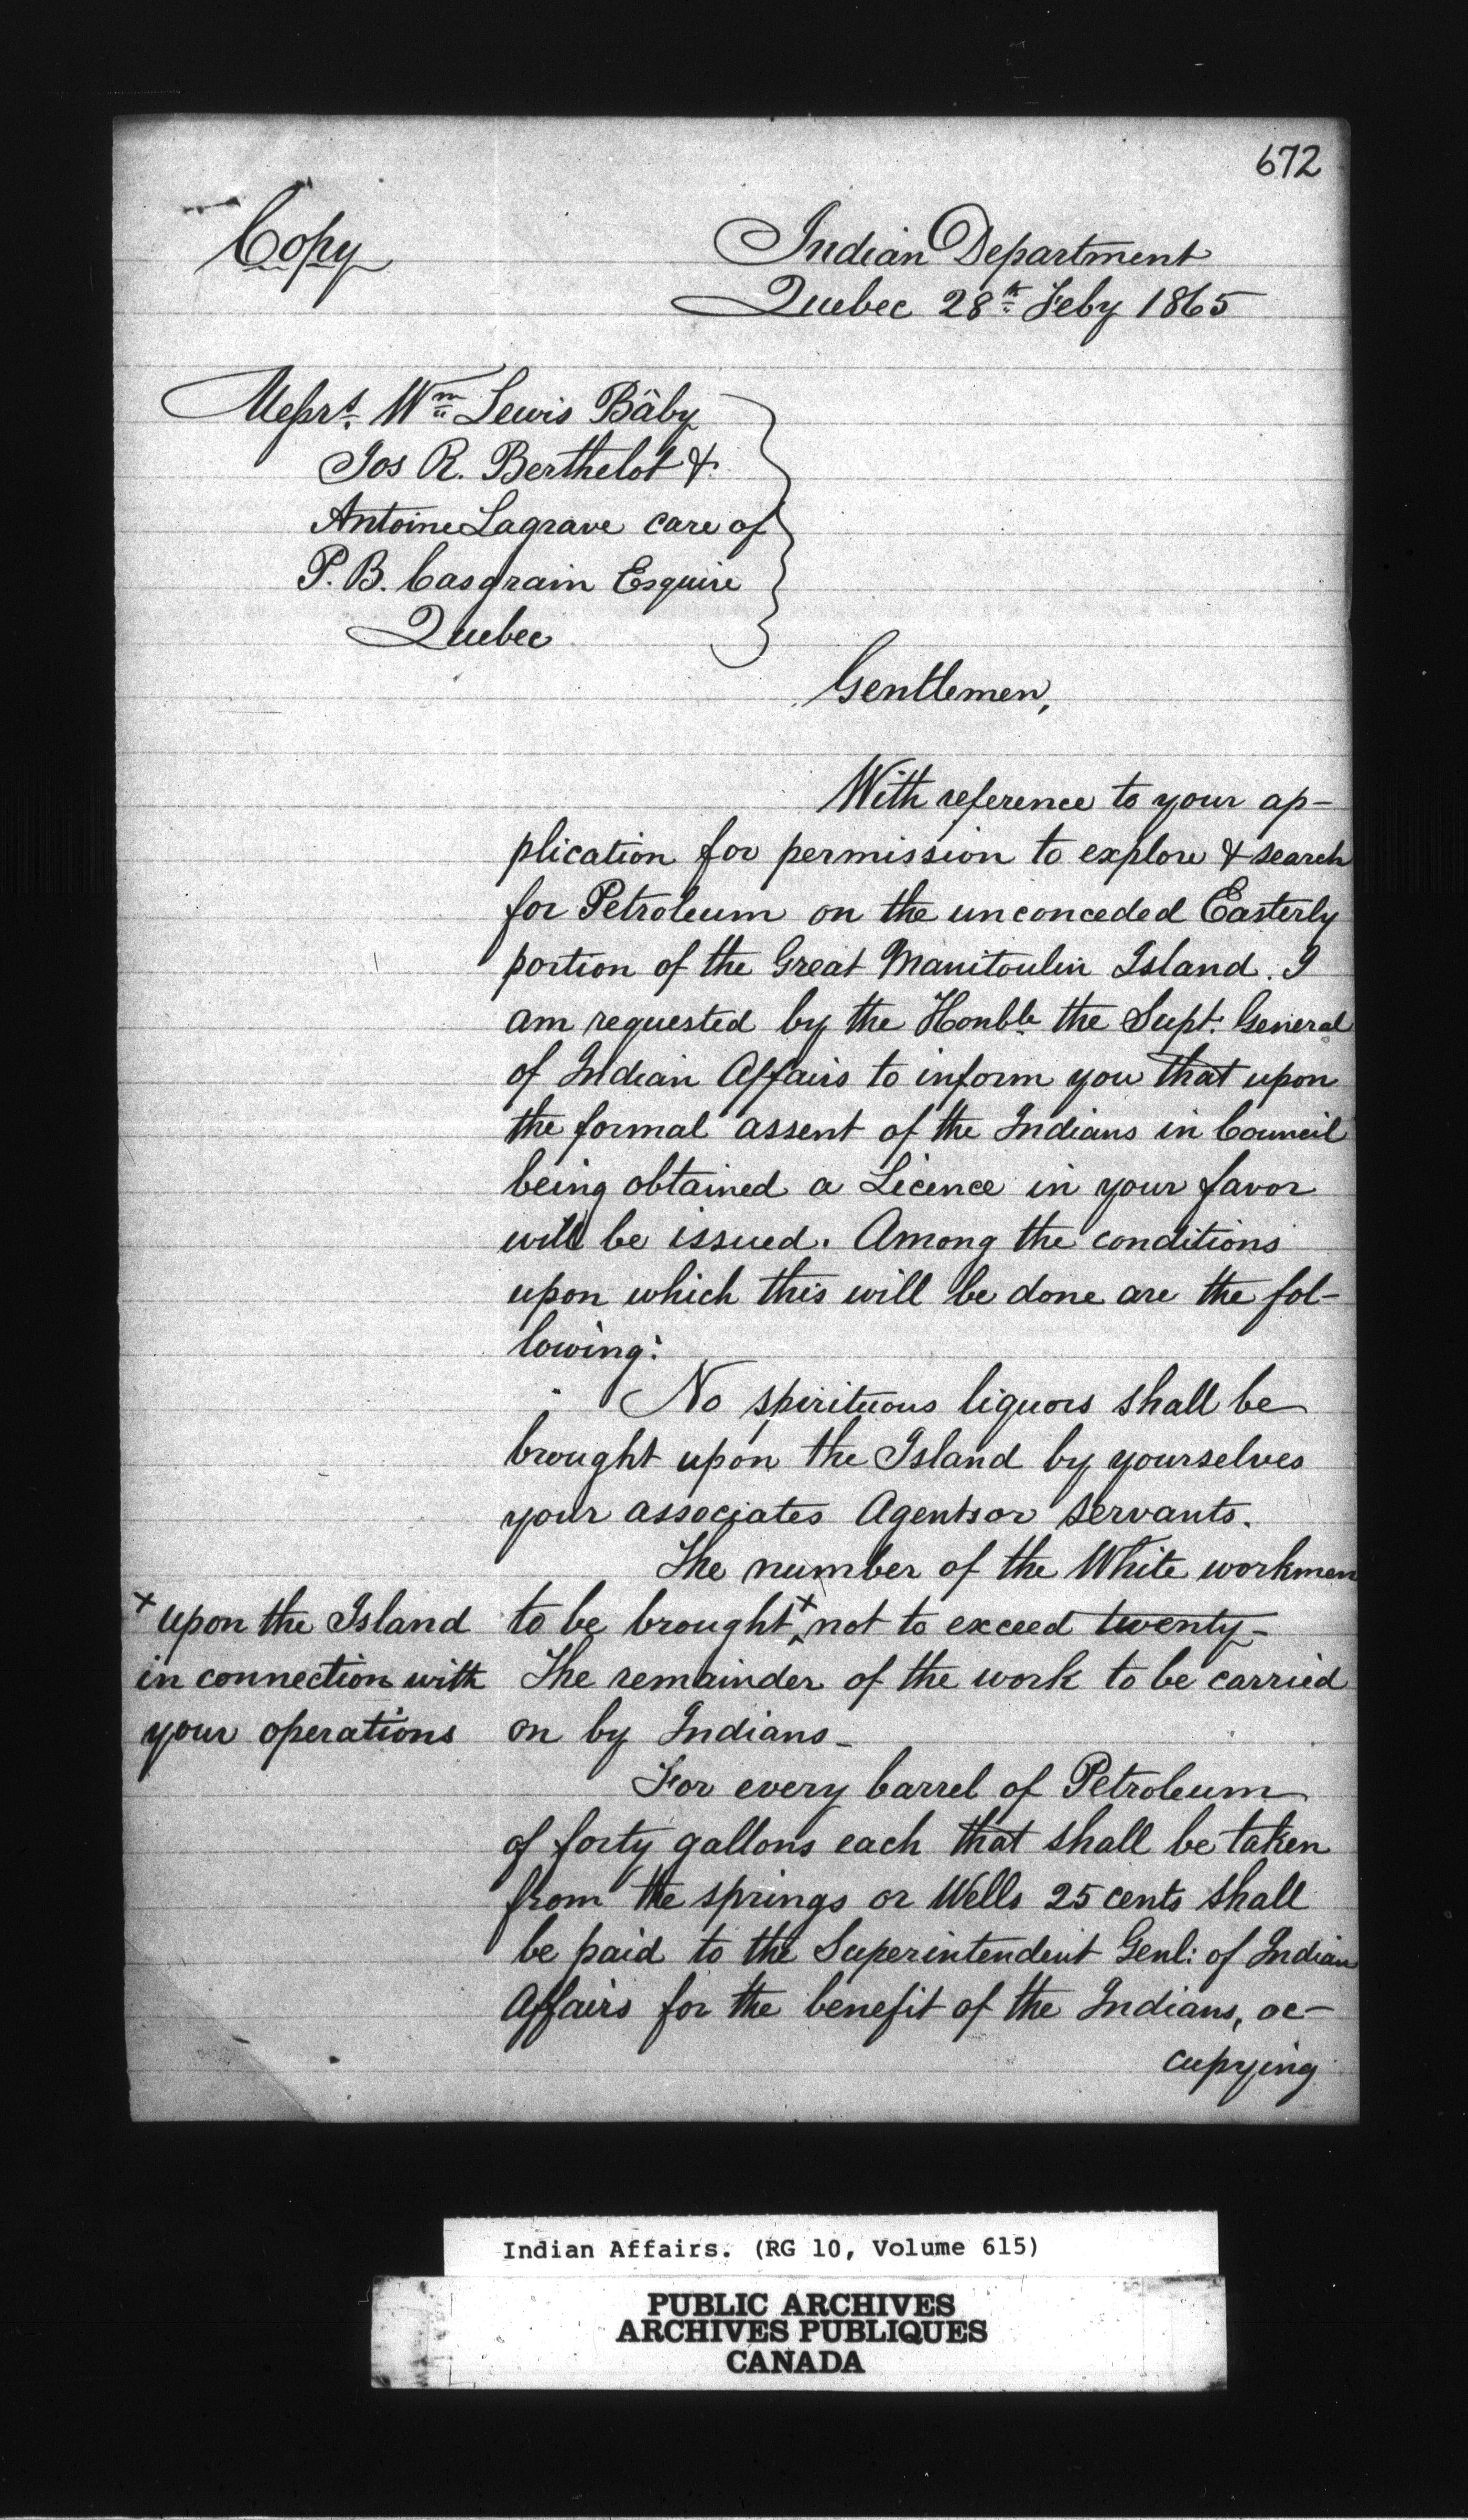 672
Copy
Indian Department
Quebec 28th Feby 1865
Messrs. Wm Lewis Bâby
Jos R. Berthelot &
Antoine Lagrave care of
P. B. Casgrain Esquire
Quebec
Gentlemen,
With reference to your ap-
plication for permission to explore & search
for Petroleum on the unconceded Easterly
portion of the Great Manitoulin Island. I
am requested by the Honble the Supt. General
of Indian Affairs to inform you that upon
the formal assent of the Indians in Council
being obtained a Licence in your favor
will be issued. Among the conditions
upon which this will be done are the fol-
lowing:
No spirituous liquors shall be
brought upon the Island by yourselves
your associates Agents or servants.
The number of the White workmen
to be brought x not to exceed twenty-
x upon the Island
in connection with
your operations
The remainder of the work to be carried
on by Indians_
For every barrel of Petroleum
of forty gallons each that shall be taken
from the springs or Wells 25 cents shall
be paid to the Superintendent Genl: of Indian
Affairs for the benefit of the Indians, oc-
cupying
Indian Affairs. (RG 10, Volume 615)
PUBLIC ARCHIVES
ARCHIVES PUBLIQUES
CANADA